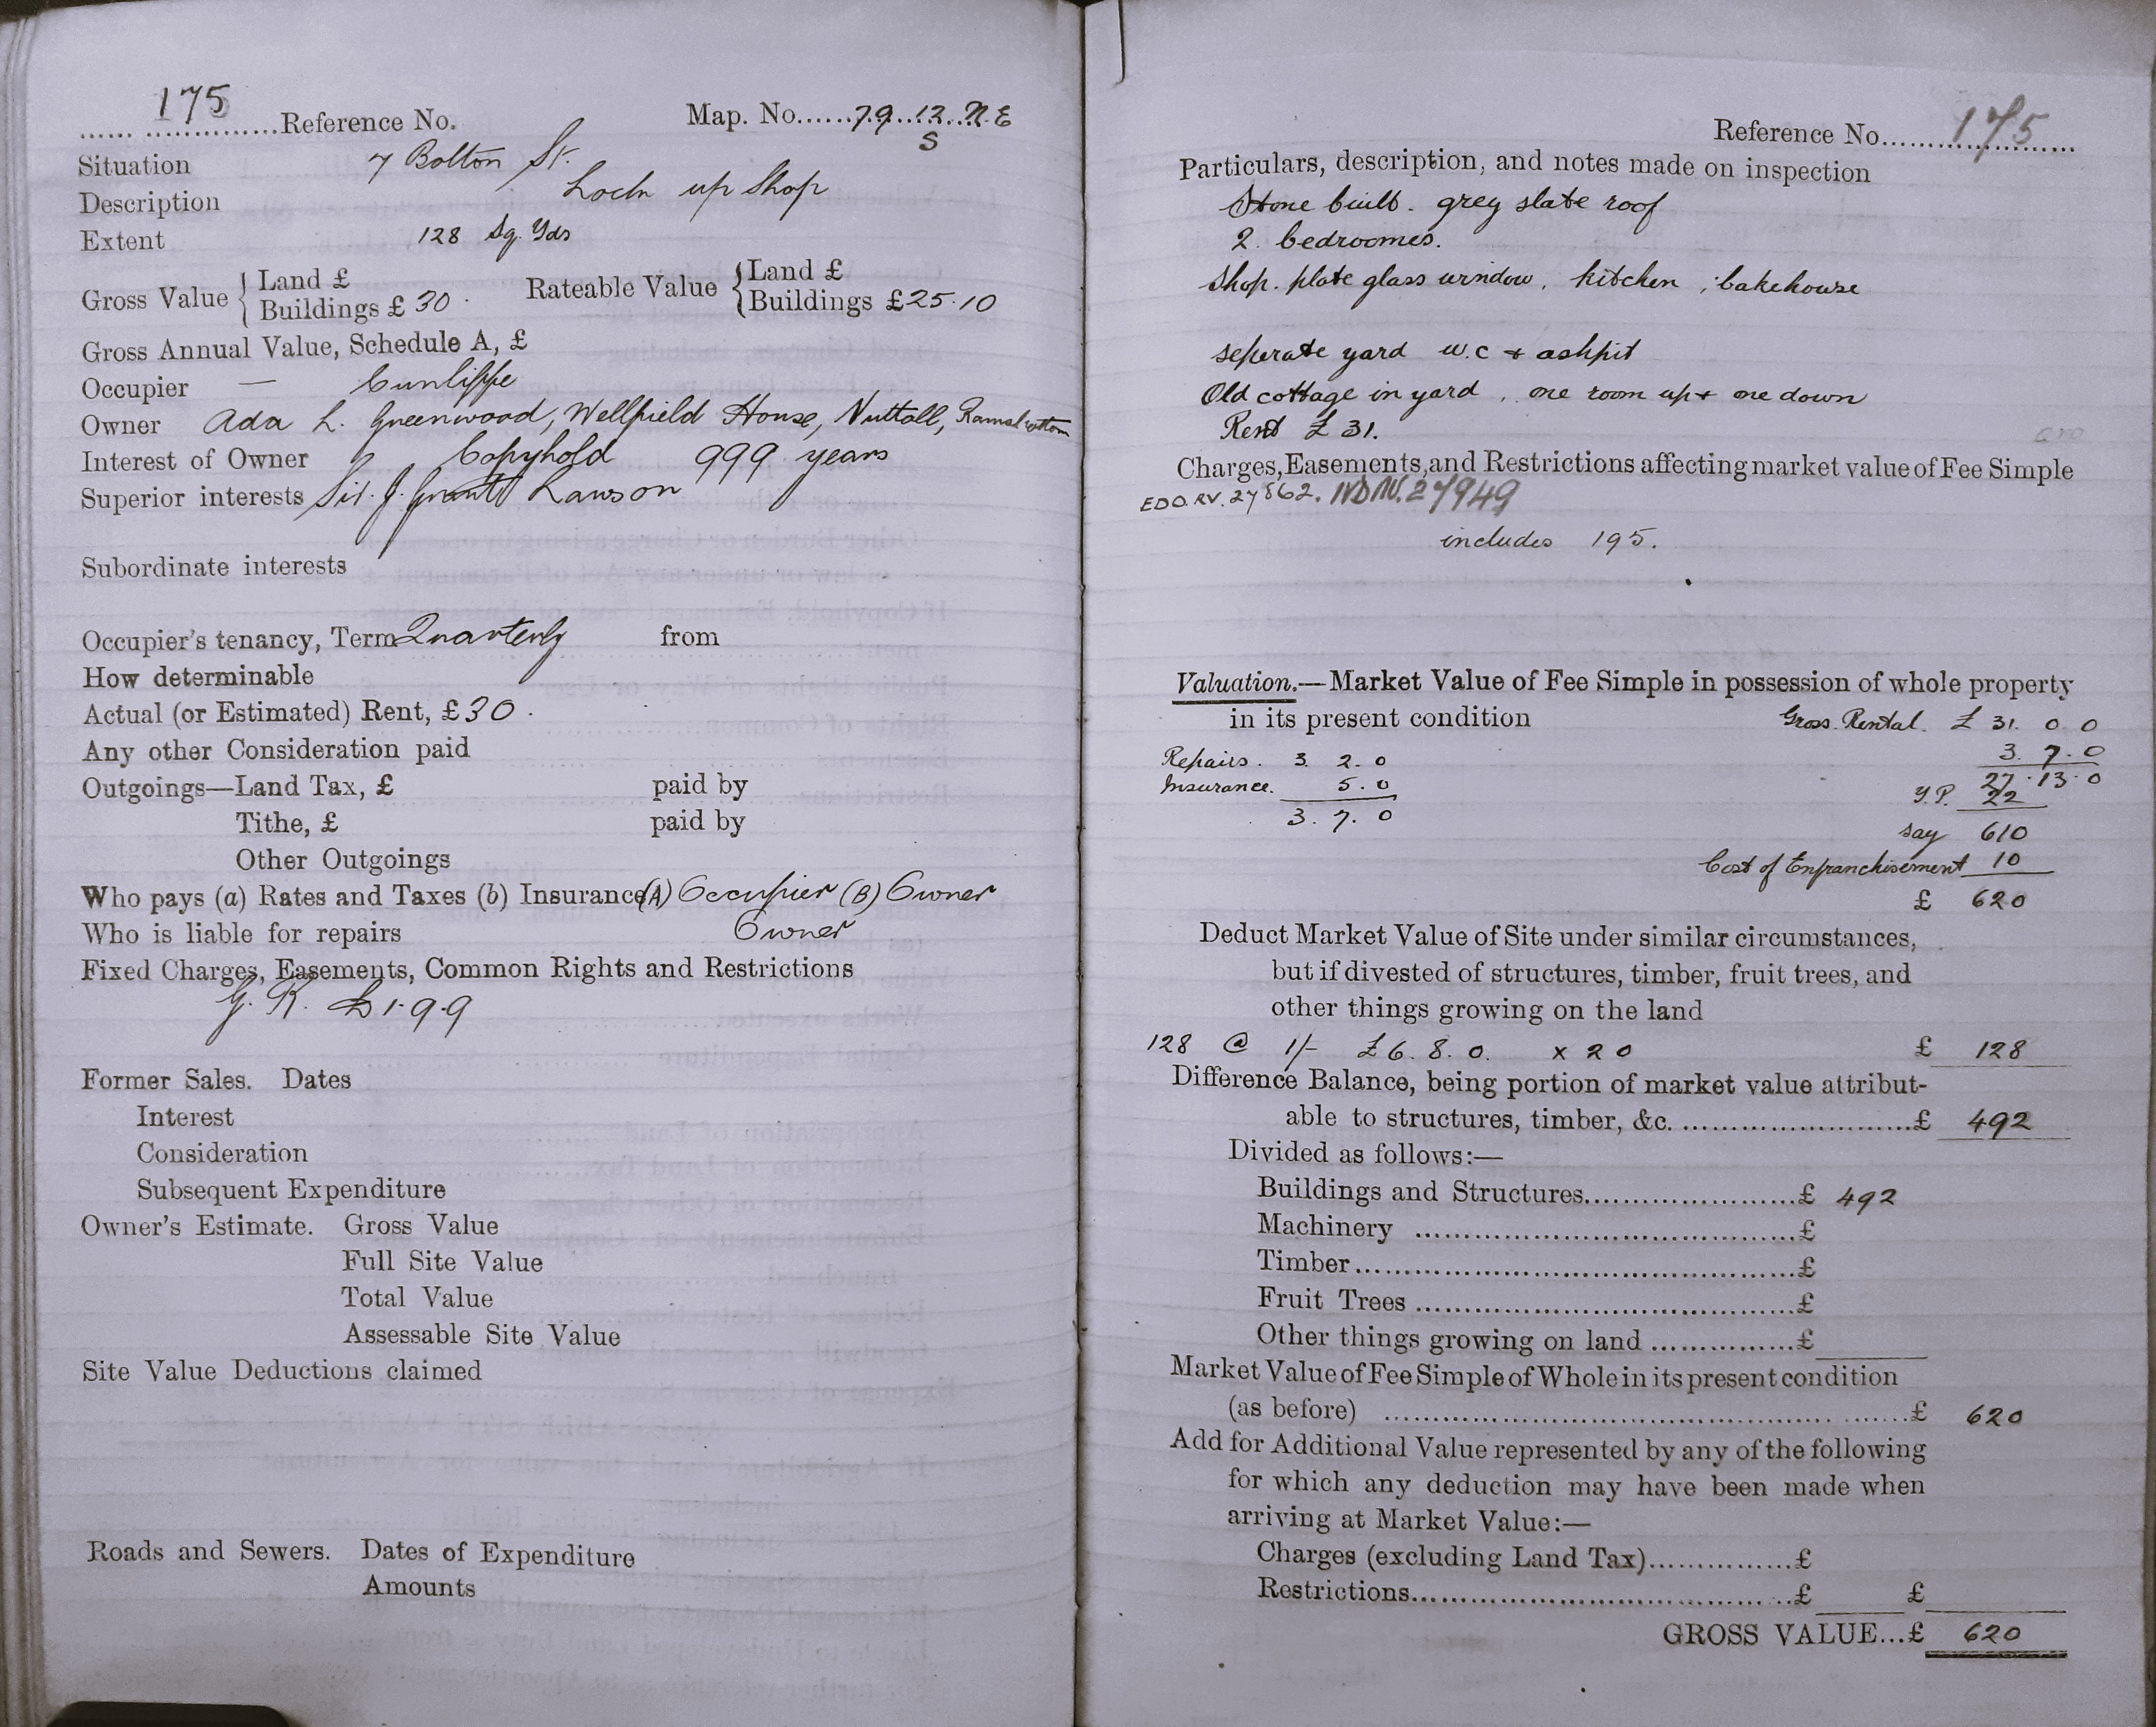 175
Reference No. Map. No. 79.12.N.E
S
Situation 7 Bolton St.
Description Lock up Shop
Extent 128 Sq. Yds
Gross Value { Land £ Rateable Value { Land £
Buildings £ 30. Buildings £ 25.10
Gross Annual Value, Schedule A, £
Occupier — Cunliffe
Owner Ada L. Greenwood, Wellfield House, Nuttall, Ramsbottom
Interest of Owner Copyhold 999 years
Superior interests Sir. J. Grant Lawson
Subordinate interests
Occupier's tenancy, Term Quarterly from
How determinable
Actual (or Estimated) Rent, £ 30.
Any other Consideration paid
Outgoings—Land Tax, £ paid by
Tithe, £ paid by
Other Outgoings
Who pays (a) Rates and Taxes (b) Insurance (A) Occupier (B) Owner
Who is liable for repairs Owner
Fixed Charges, Easements, Common Rights and Restrictions
G. R. £1-9-9
Former Sales. Dates
Interest
Consideration
Subsequent Expenditure
Owner's Estimate. Gross Value
Full Site Value
Total Value
Assessable Site Value
Site Value Deductions claimed
Roads and Sewers. Dates of Expenditure
Amounts
Reference No. 175
Particulars, description, and notes made on inspection
Stone built. grey slate roof
2. bedroomes.
Shop. plate glass window, kitchen ; bakehouse
seperate yard w.c + ashpit
Old cottage in yard, one room up + one down
Rent £ 31.
Charges, Easements, and Restrictions affecting market value of Fee Simple
EDO.RV. 27862. 27949
includes 195.
Valuation.—Market Value of Fee Simple in possession of whole property
in its present condition Gross. Rental. £ 31. 0 0
Repairs. 3. 2. 0 3. 7. 0
Insurance. 5. 0 27. 13. 0
3. 7. 0 Y.P. 22
say 610
Cost of Enfranchisement 10
£ 620
Deduct Market Value of Site under similar circumstances,
but if divested of structures, timber, fruit trees, and
other things growing on the land
128 @ 1/- £6. 8. 0. x 20 £ 128
Difference Balance, being portion of market value attribut-
able to structures, timber, &c. £ 492
Divided as follows:—
Buildings and Structures £ 492
Machinery £
Timber £
Fruit Trees £
Other things growing on land £
Market Value of Fee Simple of Whole in its present condition
(as before) £ 620
Add for Additional Value represented by any of the following
for which any deduction may have been made when
arriving at Market Value:—
Charges (excluding Land Tax) £
Restrictions £ £
GROSS VALUE...£ 620